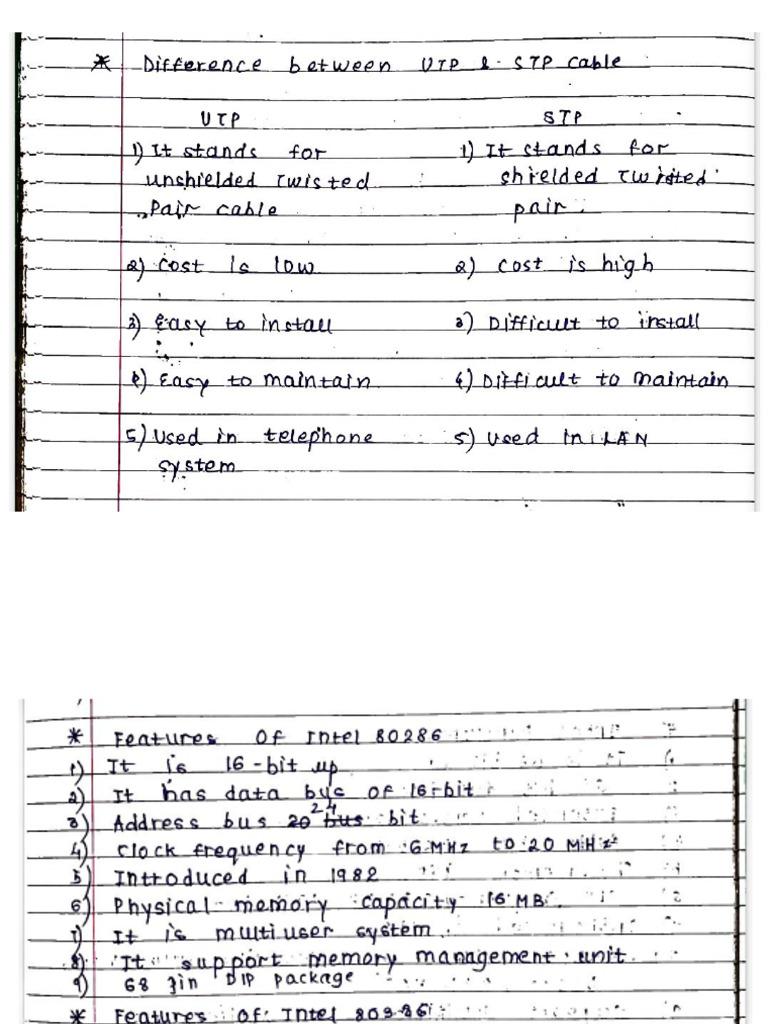 * Difference between UTP & STP cable
UTP STP
1) It stands for 1) It stands for
unshielded Twisted shielded Twisted
Pair cable pair.
2) cost is low 2) cost is high
3) Easy to install 3) Difficult to install
4) Easy to maintain 4) Difficult to maintain
5) Used in telephone 5) Used in LAN
system
* Features Of Intel 80286
1) It is 16-bit up
2) It has data bus of 16-bit
3) Address bus 20 bus 24 bit
4) clock frequency from 6 MHz to 20 MHz
5) Introduced in 1982
6) Physical memory capacity 16 MB.
7) It is multiuser system.
8) It support memory management unit.
9) 68 Pin DIP package
* Features Of Intel 80386